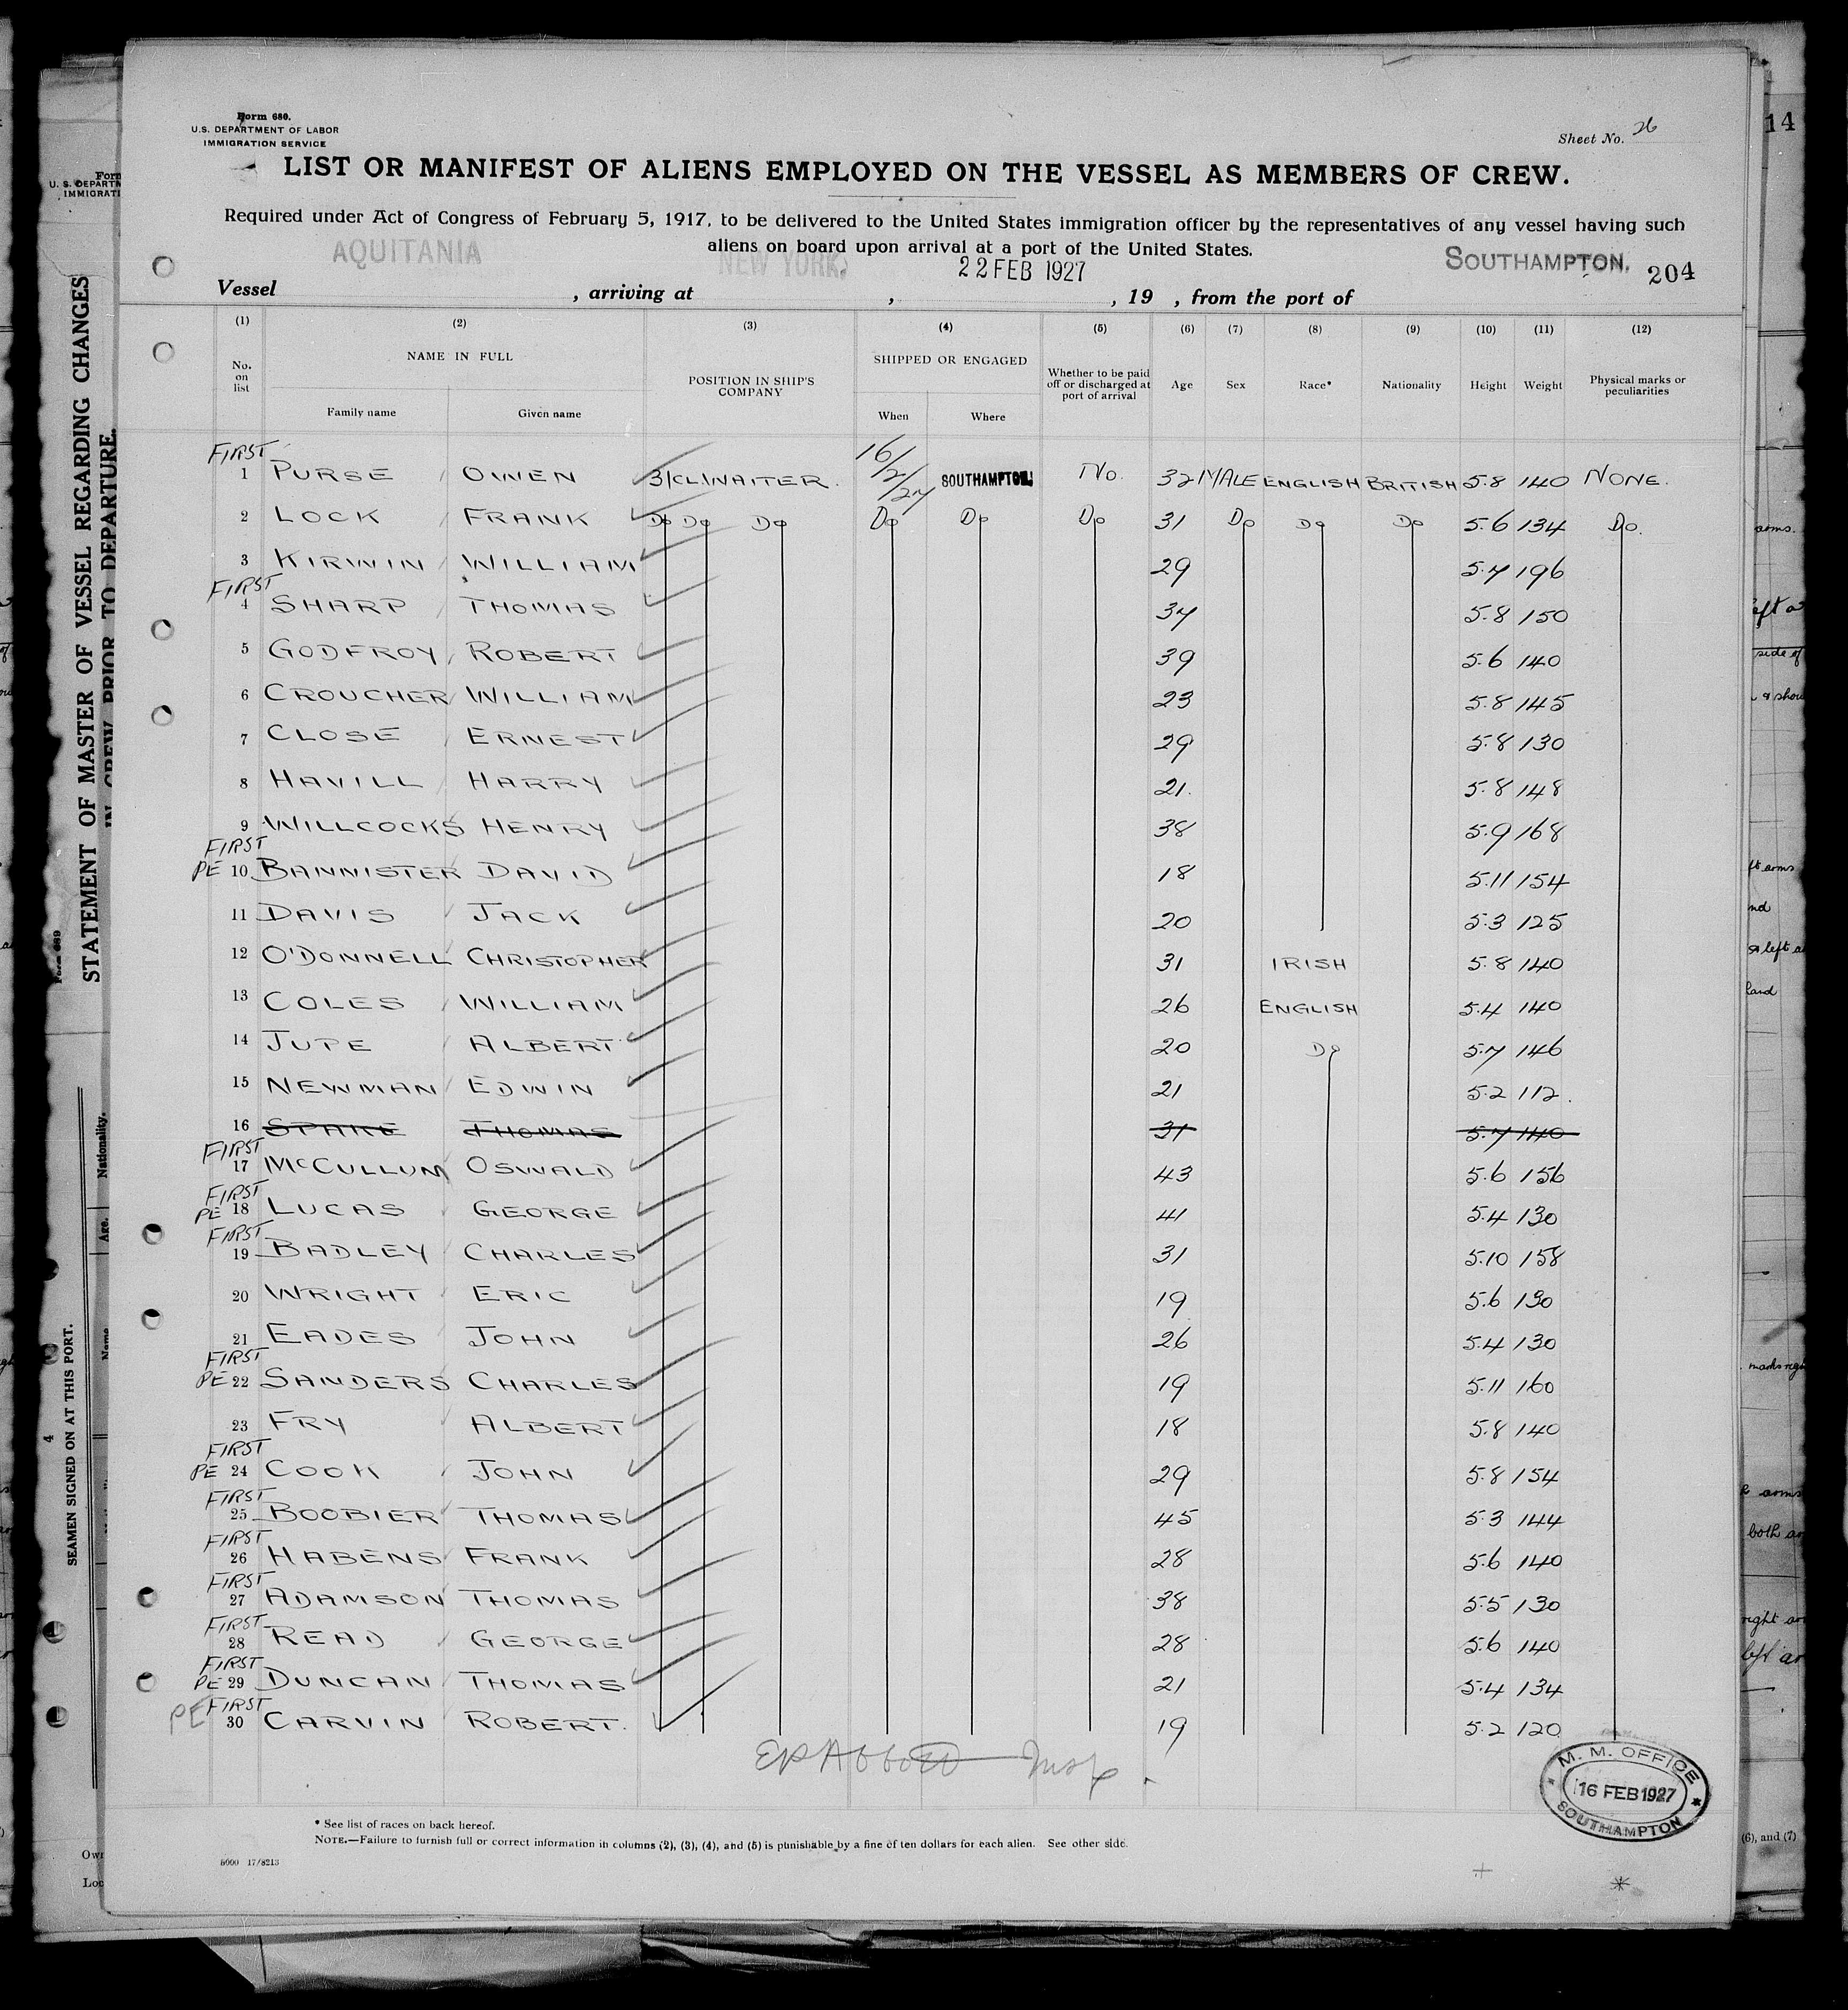 Form 680.
U.S. DEPARTMENT OF LABOR
IMMIGRATION SERVICE
Sheet No. 26
LIST OR MANIFEST OF ALIENS EMPLOYED ON THE VESSEL AS MEMBERS OF CREW.
Required under Act of Congress of February 5, 1917, to be delivered to the United States immigration officer by the representatives of any vessel having such
aliens on board upon arrival at a port of the United States.
AQUITANIA NEW YORK, 22 FEB 1927 SOUTHAMPTON. 204
Vessel , arriving at , , 19 , from the port of
(1) (2) (3) (4) (5) (6) (7) (8) (9) (10) (11) (12)
No. on list NAME IN FULL POSITION IN SHIP'S COMPANY SHIPPED OR ENGAGED Whether to be paid off or discharged at port of arrival Age Sex Race* Nationality Height Weight Physical marks or peculiarities
Family name Given name When Where
FIRST
1 PURSE OWEN 3/CL WAITER. 16/2/27 SOUTHAMPTON. No. 32 MALE ENGLISH BRITISH 5.8 140 NONE.
2 LOCK FRANK Do Do Do Do Do Do 31 Do Do Do 5.6 134 Do.
3 KIRWIN WILLIAM 29 5.7 196
FIRST
4 SHARP THOMAS 37 5.8 150
5 GODFROY ROBERT 39 5.6 140
6 CROUCHER WILLIAM 23 5.8 145
7 CLOSE ERNEST 29 5.8 130
8 HAVILL HARRY 21. 5.8 148
9 WILLCOCKS HENRY 38 5.9 168
FIRST
PE 10 BANNISTER DAVID 18 5.11 154
11 DAVIS JACK 20 5.3 125
12 O'DONNELL CHRISTOPHER 31 IRISH 5.8 140
13 COLES WILLIAM 26 ENGLISH 5.4 140
14 JUPE ALBERT 20 Do 5.7 146
15 NEWMAN EDWIN 21 5.2 112.
16 SPAKE THOMAS 31 5.7 140
FIRST
17 McCULLUM OSWALD 43 5.6 156
FIRST
PE 18 LUCAS GEORGE 41 5.4 130
FIRST
19 BADLEY CHARLES 31 5.10 158
20 WRIGHT ERIC 19 5.6 130
21 EADES JOHN 26 5.4 130
FIRST
PE 22 SANDERS CHARLES 19 5.11 160
23 FRY ALBERT 18 5.8 140
FIRST
PE 24 COOK JOHN 29 5.8 154
FIRST
25 BOOBIER THOMAS 45 5.3 144
FIRST
26 HABENS FRANK 28 5.6 140
FIRST
27 ADAMSON THOMAS 38 5.5 130
FIRST
28 READ GEORGE 28 5.6 140
FIRST
PE 29 DUNCAN THOMAS 21 5.4 134
FIRST
PE 30 CARVIN ROBERT. 19 5.2 120
M. M. OFFICE
16 FEB 1927
SOUTHAMPTON
* See list of races on back hereof.
NOTE.—Failure to furnish full or correct information in columns (2), (3), (4), and (5) is punishable by a fine of ten dollars for each alien. See other side.
6000 17/8213
STATEMENT OF MASTER OF VESSEL REGARDING CHANGES
IN CREW PRIOR TO DEPARTURE.
SEAMEN SIGNED ON AT THIS PORT.
Nationality.
Age.
Name
4
14
arms.
side of
nd
left a
hand
both
(6), and (7)